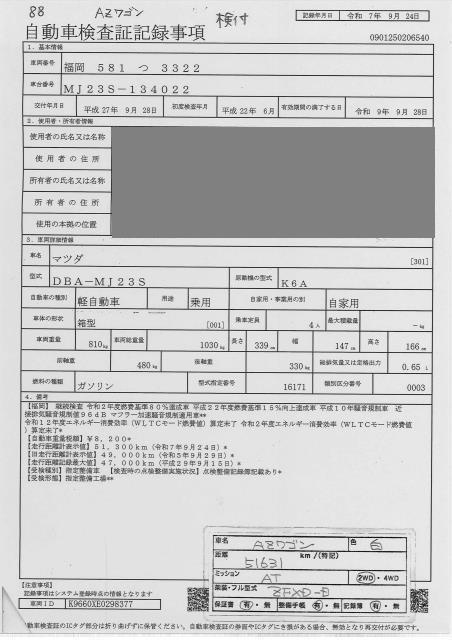 88 AZワゴン 検付
記録年月日 令和 7年 9月 24日
自動車検査証記録事項
0901250206540
1．基本情報
車両番号 福岡 581 つ 3322
車台番号 MJ23S-134022
交付年月日 平成 27年 9月 28日 初度検査年月 平成 22年 6月 有効期間の満了する日 令和 9年 9月 28日
2．使用者・所有者情報
使用者の氏名又は名称
使用者の住所
所有者の氏名又は名称
所有者の住所
使用の本拠の位置
3．車両詳細情報
車名 マツダ [301]
型式 DBA-MJ23S 原動機の型式 K6A
自動車の種別 軽自動車 用途 乗用 自家用・事業用の別 自家用
車体の形状 箱型 [001] 乗車定員 4人 最大積載量 -kg
車両重量 810kg 車両総重量 1030kg 長さ 339cm 幅 147cm 高さ 166cm
前軸重 480kg 後軸重 330kg 総排気量又は定格出力 0.65 L
燃料の種類 ガソリン 型式指定番号 16171 類別区分番号 0003
4．備考
【福岡】 継続検査 令和2年度燃費基準80%達成車 平成22年度燃費基準15%向上達成車 平成10年騒音規制車 近
接排気騒音規制値96dB マフラー加速騒音規制適用車**
令和12年度エネルギー消費効率（WLTCモード燃費値）算定未了 令和2年度エネルギー消費効率（WLTCモード燃費値
）算定未了*
【自動車重量税額】¥8,200*
【走行距離計表示値】51,300km（令和7年9月24日）*
【旧走行距離計表示値】49,000km（令和5年9月29日）*
【走行距離記録最大値】47,000km（平成29年9月15日）*
【受検種別】指定整備車 【検査時の点検整備実施状況】点検整備記録簿記載あり*
【受検形態】指定整備工場**
車名 AZワゴン 色 白
距離 51631 km/(特記)
ミッション AT 2WD・4WD
架装・フル型式
保証書 有・無 整備手帳 有・無 記録簿 有・無
【注意事項】
記録事項はシステム登録時点の情報となります
車両ID K9660XE0298377
自動車検査証のICタグ部分は折り曲げずに保管ください。自動車検査証の券面やICタグにき損がある場合、無効となり再交付が必要です。